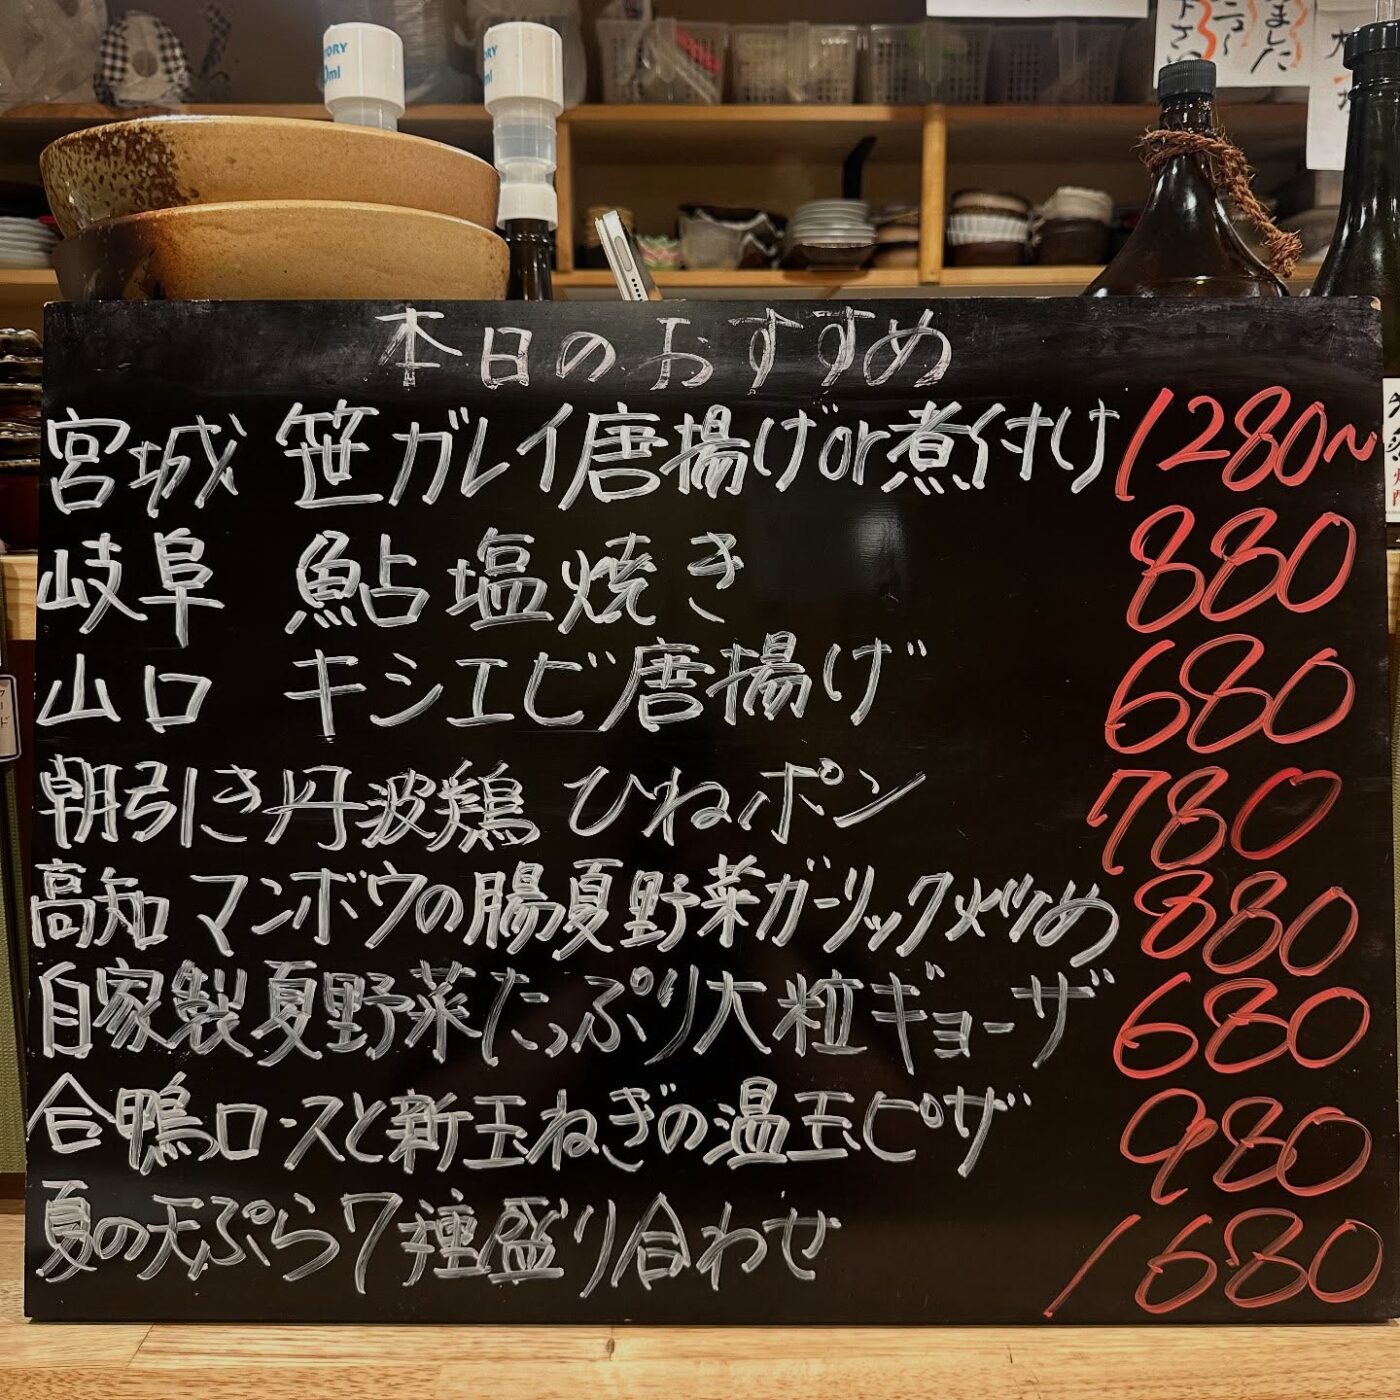 本日のおすすめ
宮城 笹ガレイ唐揚げor煮付け 1280〜
岐阜 鮎塩焼き 880
山口 キシエビ唐揚げ 680
朝引き丹波鶏 ひねポン 780
高知 マンボウの腸夏野菜ガーリック炒め 880
自家製夏野菜たっぷり大粒ギョーザ 680
合鴨ロースと新玉ねぎの温玉ピザ 980
夏の天ぷら7種盛り合わせ 1680